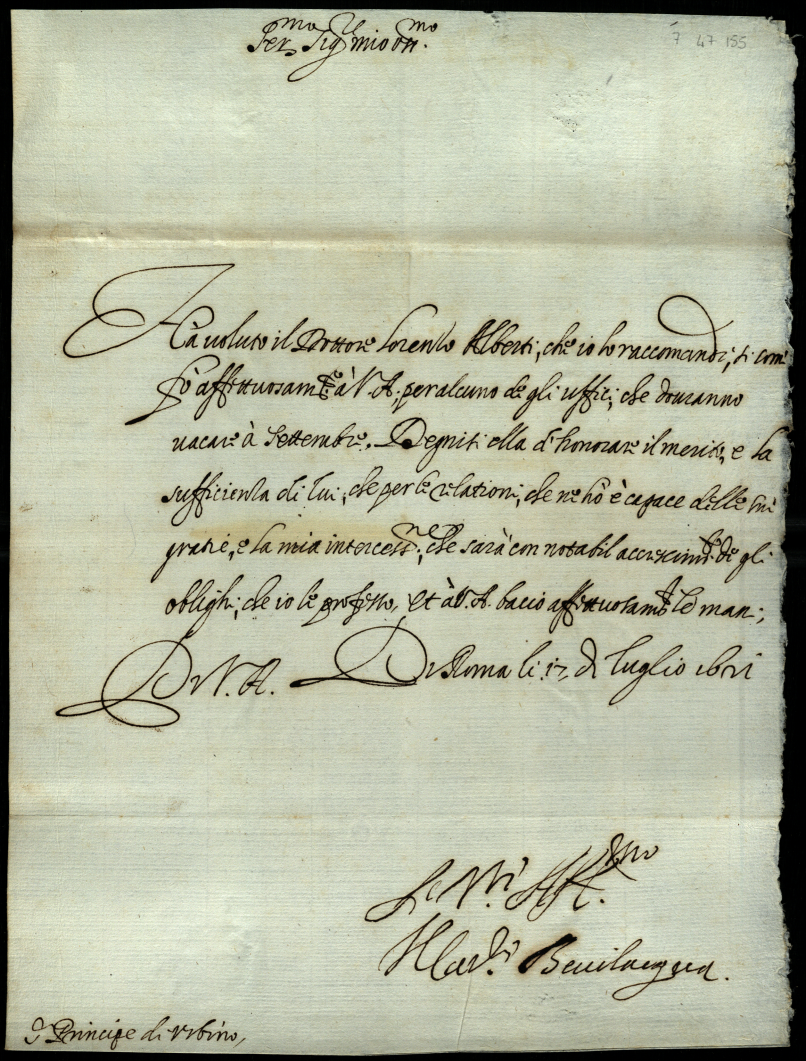 Ser.mo Sig.r mio oss.mo
7 47 155
Hà uoluto il Dottore Lorenzo Alberti, che io lo raccomandi, si come
fò affettuosam.te à V. A. per alcuno de gli uffici, che douranno
uacare à Settembre. Degnisi ella d'honorare il merito, e la
sufficienza di lui, che per le relationi, che ne hò è capace delle sue
gratie, e la mia intercess.ne, che sarà con notabil accrescim.to de gli
oblighi, che io le professo, et à V. A. bacio affettuosam.te le mani,
Di V. A. Di Roma li 17 di luglio 1621
Aff.mo
Card.l Beuilacqua.
Principe di Vrbino,